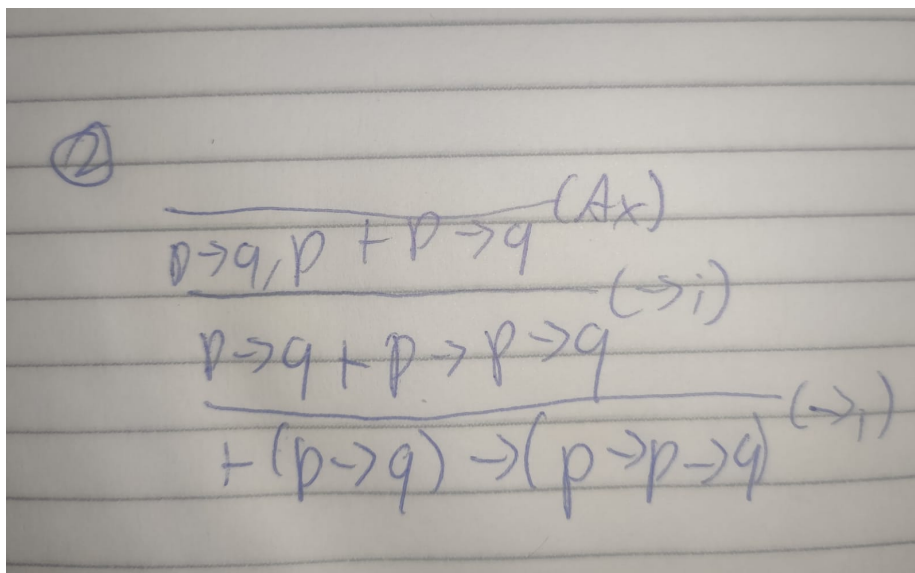 ②
(Ax)
p→q, p ⊢ p→q
(→i)
p→q ⊢ p→p→q
(→i)
⊢ (p→q)→(p→p→q)